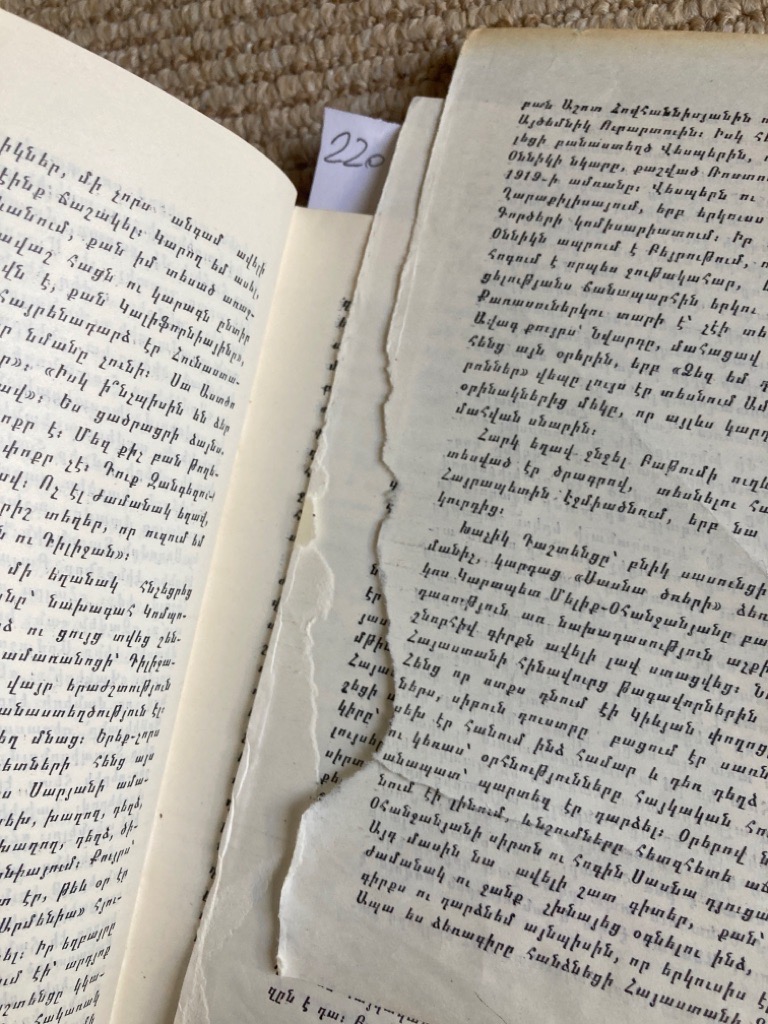 իկներ, մի չորս անգամ ավելի
էինք ճաշակել: Կարող եմ ասել,
կանում, քան իմ տեսած առաջ-
ավաշ հացն ու կարագն ընտիր
վն է, քան Կալիֆորնիայինը»,
Հայրենադարձ էր Հունաստա-
ր նմանը չունի: Սա Աստծո
ր»: «Իսկ ի՞նչպիսին են ձեր
ավ»: Ես ցածրացրի ձայնս.
ոքր է: Մեզ քիչ բան թողե-
փոքր չէ: Դուք Զանգեզուր
ավ: Ոչ էլ ժամանակ եղավ,
րիշ տեղեր, որ ուզում եմ
ն ու Դիլիջան»:
մի եղանակ հնչեցրեց
նը՝ նախագահ Կոմպո-
ձ ու ցույց տվեց շեն-
ամառանոցի՝ Դիլիջա-
վայր երաժշտություն
անաստեղծություն էլ:
եղ մնաց: Երեք-չորս
ետների հենց այս
ս Սարյանի ամա-
եխ, խաղող, դեղձ,
խաղող, դեղձ, ծի-
նիայում: Քույրս՝
տ էր, թեև օր էր
Արմենիա» հյու-
ել: Իր եղբայրը
ում էի՝ արդյոք
շտենցը կկա-
հակառակ
220
բան Աշոտ Հովհաննիսյանին
Այծեմնիկ Ուրարտուին: Իսկ
լեցի բանաստեղծ Վեսպերին,
Օննիկի նկարը, քաշված Ռոստո
1919-ի ամռանը: Վեսպերն ու
Ղարաքիլիսայում, երբ երկուսս
Գործերի կոմիսարիատում: Իր
Օննիկն ապրում է Բեյրութում,
Հոգում է որպես ջութակահար,
ցելությանս ճանապարհին երկու
Քառասուներկու տարի է՝ չէի տե
Ավագ քույրս՝ Նվարդը, մահացավ
հենց այն օրերին, երբ «Ձեզ եմ
րոններ» վեպը լույս էր տեսնում Ամ
օրինակներից մեկը, որ այլևս կարդ
մահվան սնարին:
Հարկ եղավ ջնջել Բաթումի ուղև
տեսված էր ծրագրով, տեսնելու հա
Հայրապետին Էջմիածնում, երբ նա
կուրդից:
Խաչիկ Դաշտենցը՝ բնիկ սասունցի
մանիչ, կարդաց «Սասնա ծռերի» ձեռ
կոս Կարապետ Մելիք-Օհանջանյանը բա
գասություն առ նախադասություն աչքի
շնորհիվ գիրքն ավելի լավ ստացվեց: Ն
Հայաստանի հինավուրց թագավորներին
Հենց որ ոտքս դնում էի Կիևյան փողոց
ներս, սիրուն դուստրը բացում էր սառն
սեխ էր հանում ինձ համար և դեռ դեղձ
ու կեռաս՝ օրհնությունները հայկական հո
անապատ՝ պարտեզ էր դարձել: Օրերով ն
նում էի լինում, և նշումները հետզհետե ան
Օհանջանյանի սիրտն ու հոգին Սասնա դյուցա
Այդ մասին նա ավելի շատ գիտեր, քան՝
ժամանակ ու ջանք չխնայեց օգնելու ինձ,
գիրքս ու դարձնեմ այնպիսին, որ երկուսիս է
Ապա ես ձեռագիրը հանձնեցի Հայաստանի
ղըն է դա: